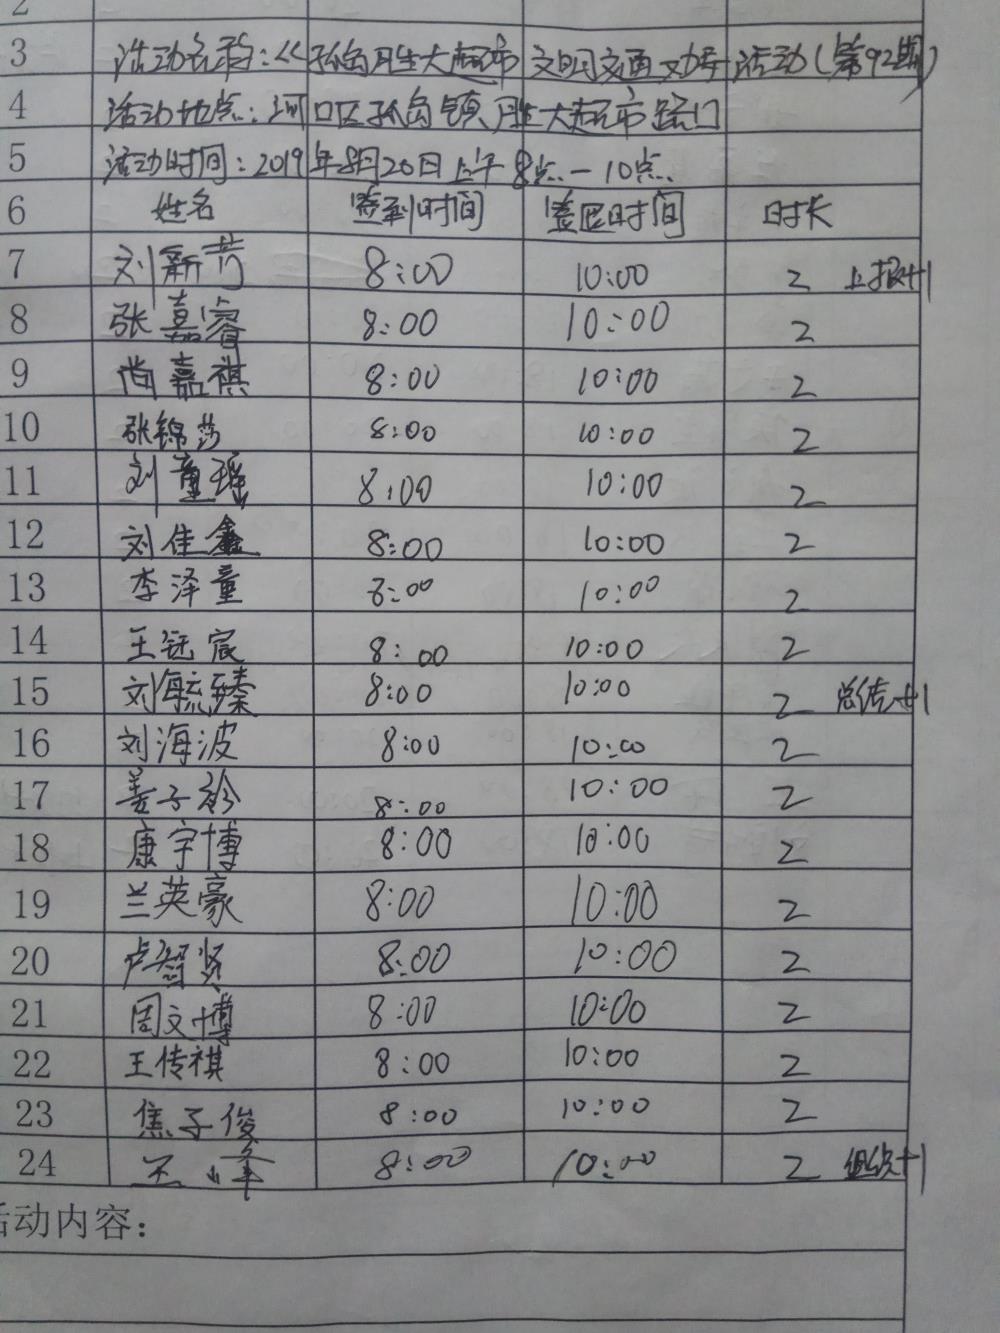 2
3 活动名称：《孤岛胜大超市文明交通劝导活动（第92期）
4 活动地点：河口区孤岛镇胜大超市路口
5 活动时间：2019年8月20日上午8点—10点
6 姓名 签到时间 签退时间 时长
7 刘新芳 8:00 10:00 2 上报+1
8 张嘉睿 8:00 10:00 2
9 尚嘉祺 8:00 10:00 2
10 张锦莎 8:00 10:00 2
11 刘童瑶 8:00 10:00 2
12 刘佳鑫 8:00 10:00 2
13 李泽童 8:00 10:00 2
14 王钰宸 8:00 10:00 2
15 刘毓臻 8:00 10:00 2 总结+1
16 刘海波 8:00 10:00 2
17 姜子衿 8:00 10:00 2
18 康宇博 8:00 10:00 2
19 兰英豪 8:00 10:00 2
20 卢智贤 8:00 10:00 2
21 周文博 8:00 10:00 2
22 王传祺 8:00 10:00 2
23 焦子俊 8:00 10:00 2
24 8:00 10:00 2 组织+1
活动内容：